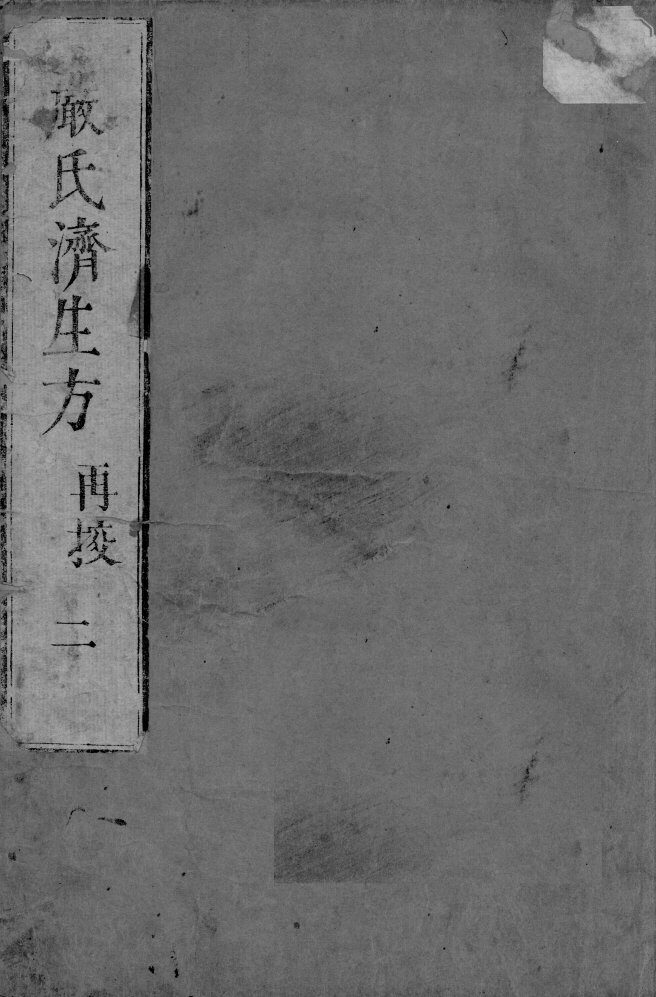 嚴氏濟生方 再挍 二